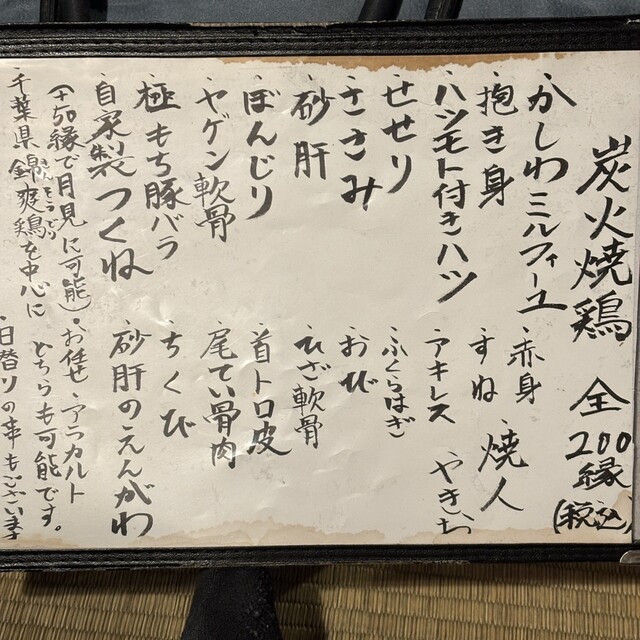 炭火焼鶏 全200縁(税込)
かしわミルフィーユ
抱き身
ハツモト付きハツ
せせり
ささみ
砂肝
ぼんじり
ヤゲン軟骨
極もち豚バラ
自家製つくね
(+50縁で月見に可能)
千葉県錦爽鶏を中心に
赤身
すね
焼人
やきいち
アキレス
ふくらはぎ
おび
ひざ軟骨
首トロ皮
尾てい骨肉
ちくび
砂肝のえんがわ
・お任せ・アラカルト
どちらも可能です。
・日替りの事もございます